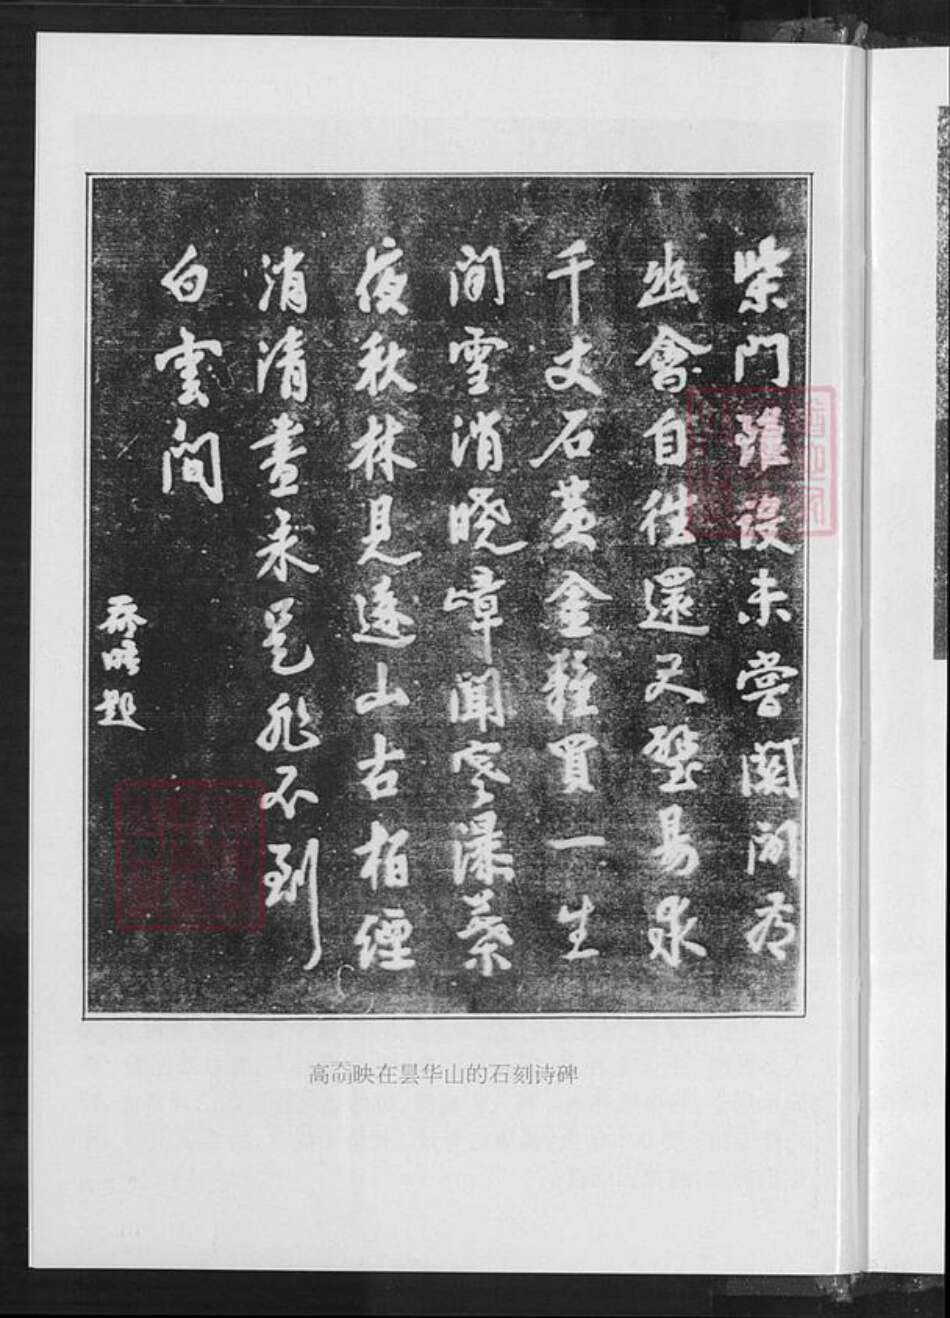 柴門雖設未嘗關閒看
幽禽自往還尺璧易求
千丈石黃金難買一生
閒雪消曉嶂聞寒瀑葉
秋林見遠山古柏煙
消清晝永是非不到
白雲間
奣映題
高奣映在昙华山的石刻诗碑